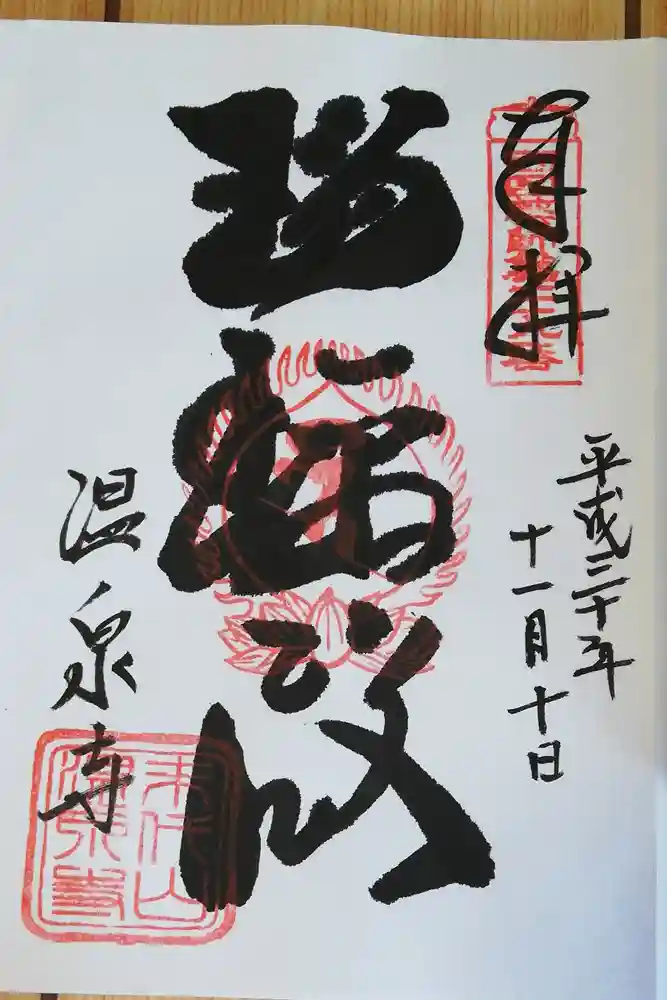 奉拝
平成三十年
十一月十日
瑠璃殿
温泉寺
末代山
温泉寺